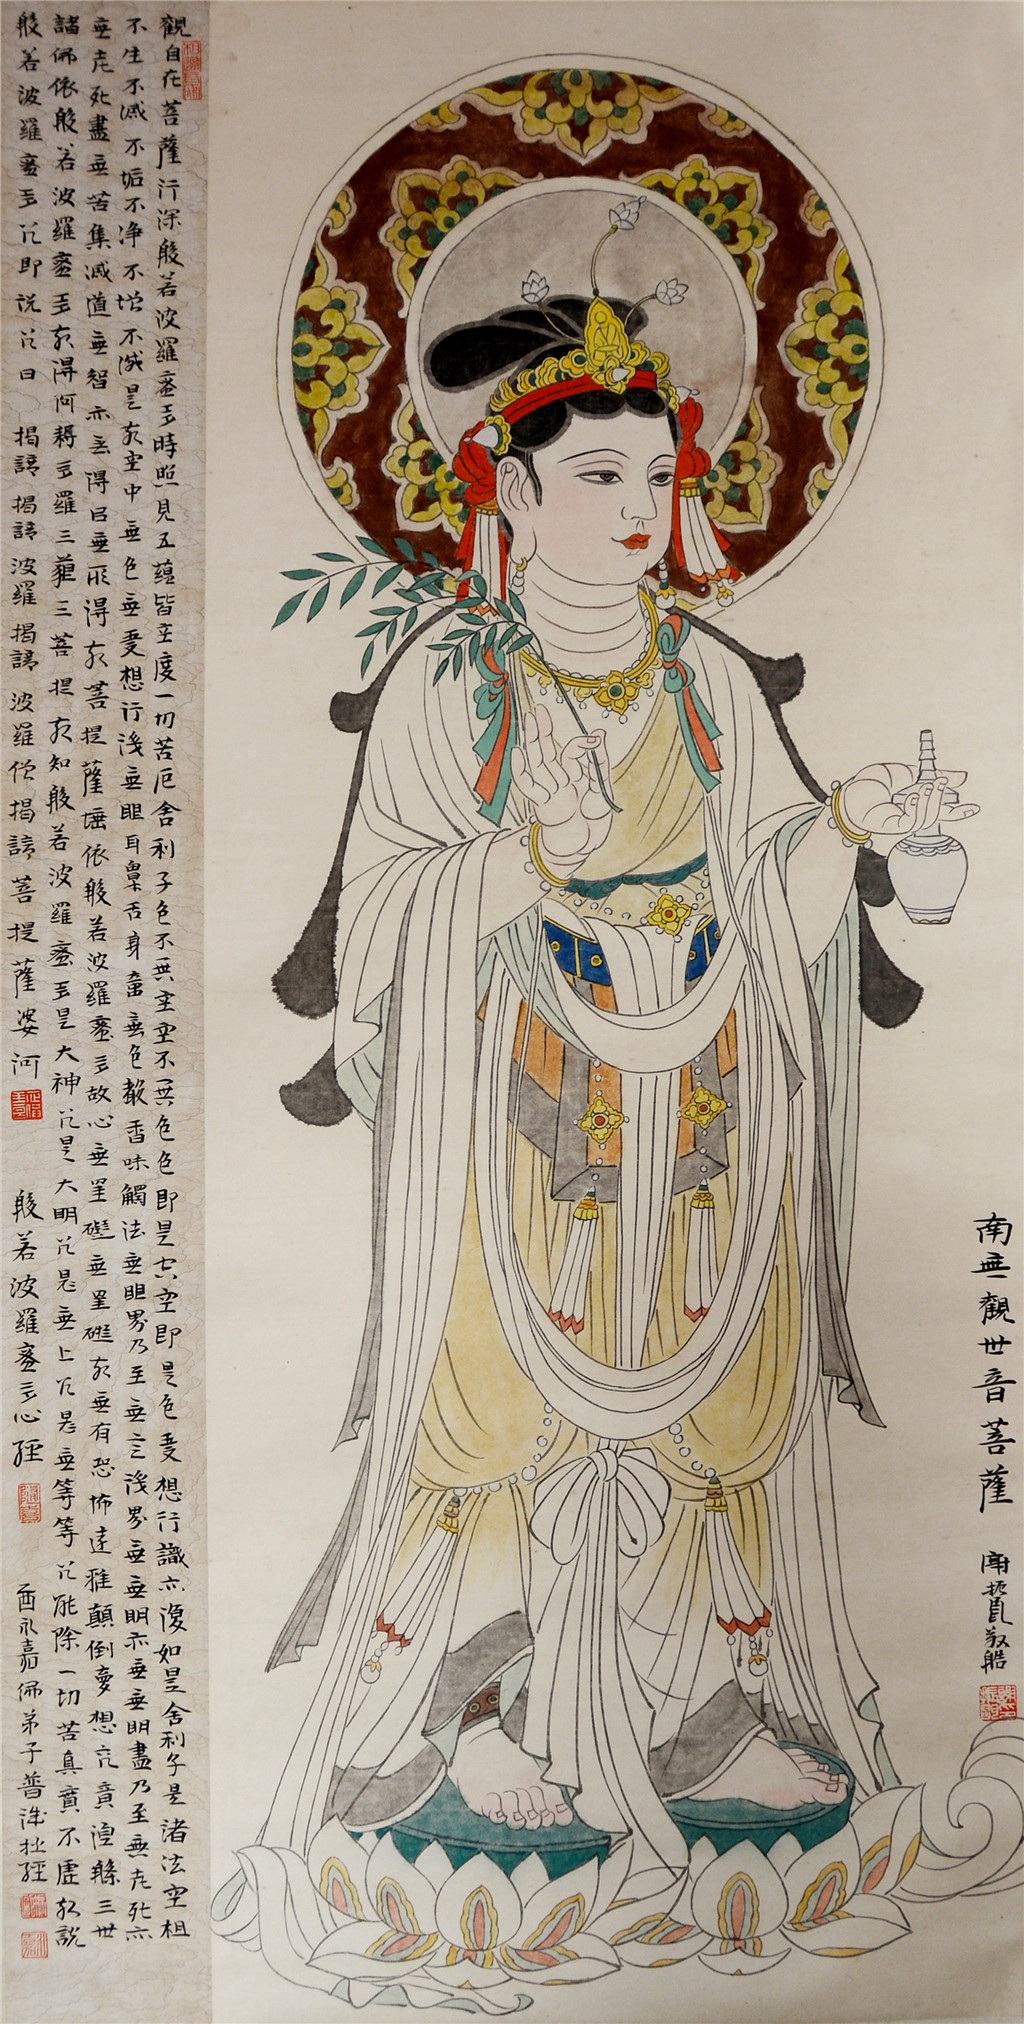 南無觀世音菩薩
敬皓
觀自在菩薩行深般若波羅蜜多時照見五蘊皆空度一切苦厄舍利子色不異空空不異色色即是空空即是色受想行識亦復如是舍利子是諸法空相
不生不滅不垢不净不增不減是故空中無色無受想行識無眼耳鼻舌身意無色聲香味觸法無眼界乃至無意識界無無明亦無無明盡乃至無老死亦
無老死盡無苦集滅道無智亦無得以無所得故菩提薩埵依般若波羅蜜多故心無罣礙無罣礙故無有恐怖遠離顛倒夢想究竟涅槃三世
諸佛依般若波羅蜜多故得阿耨多羅三藐三菩提故知般若波羅蜜多是大神咒是大明咒是無上咒是無等等咒能除一切苦真實不虛故說
般若波羅蜜多咒即說咒曰 揭諦揭諦波羅揭諦波羅僧揭諦菩提薩婆訶 般若波羅蜜多心經 酉永嘉佛弟子普